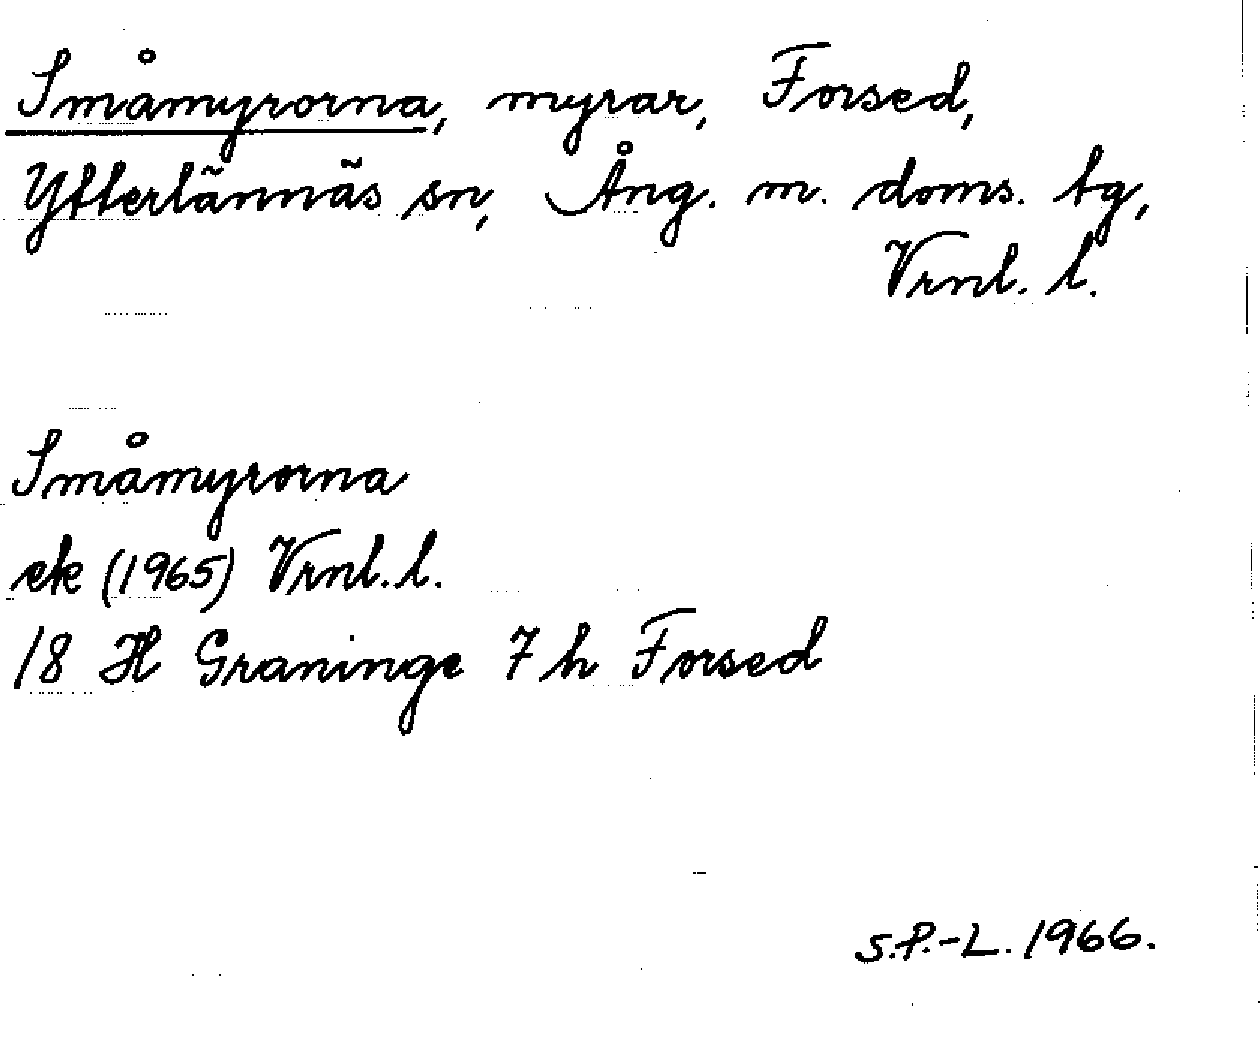 Småmyrorna, myrar, Forsed,
Ytterlännäs sn, Ång. m. doms. tg,
Vrnl. l.
Småmyrorna
ek (1965) Vrnl. l.
18 H Graninge 7 h Forsed
S.P.-L. 1966.